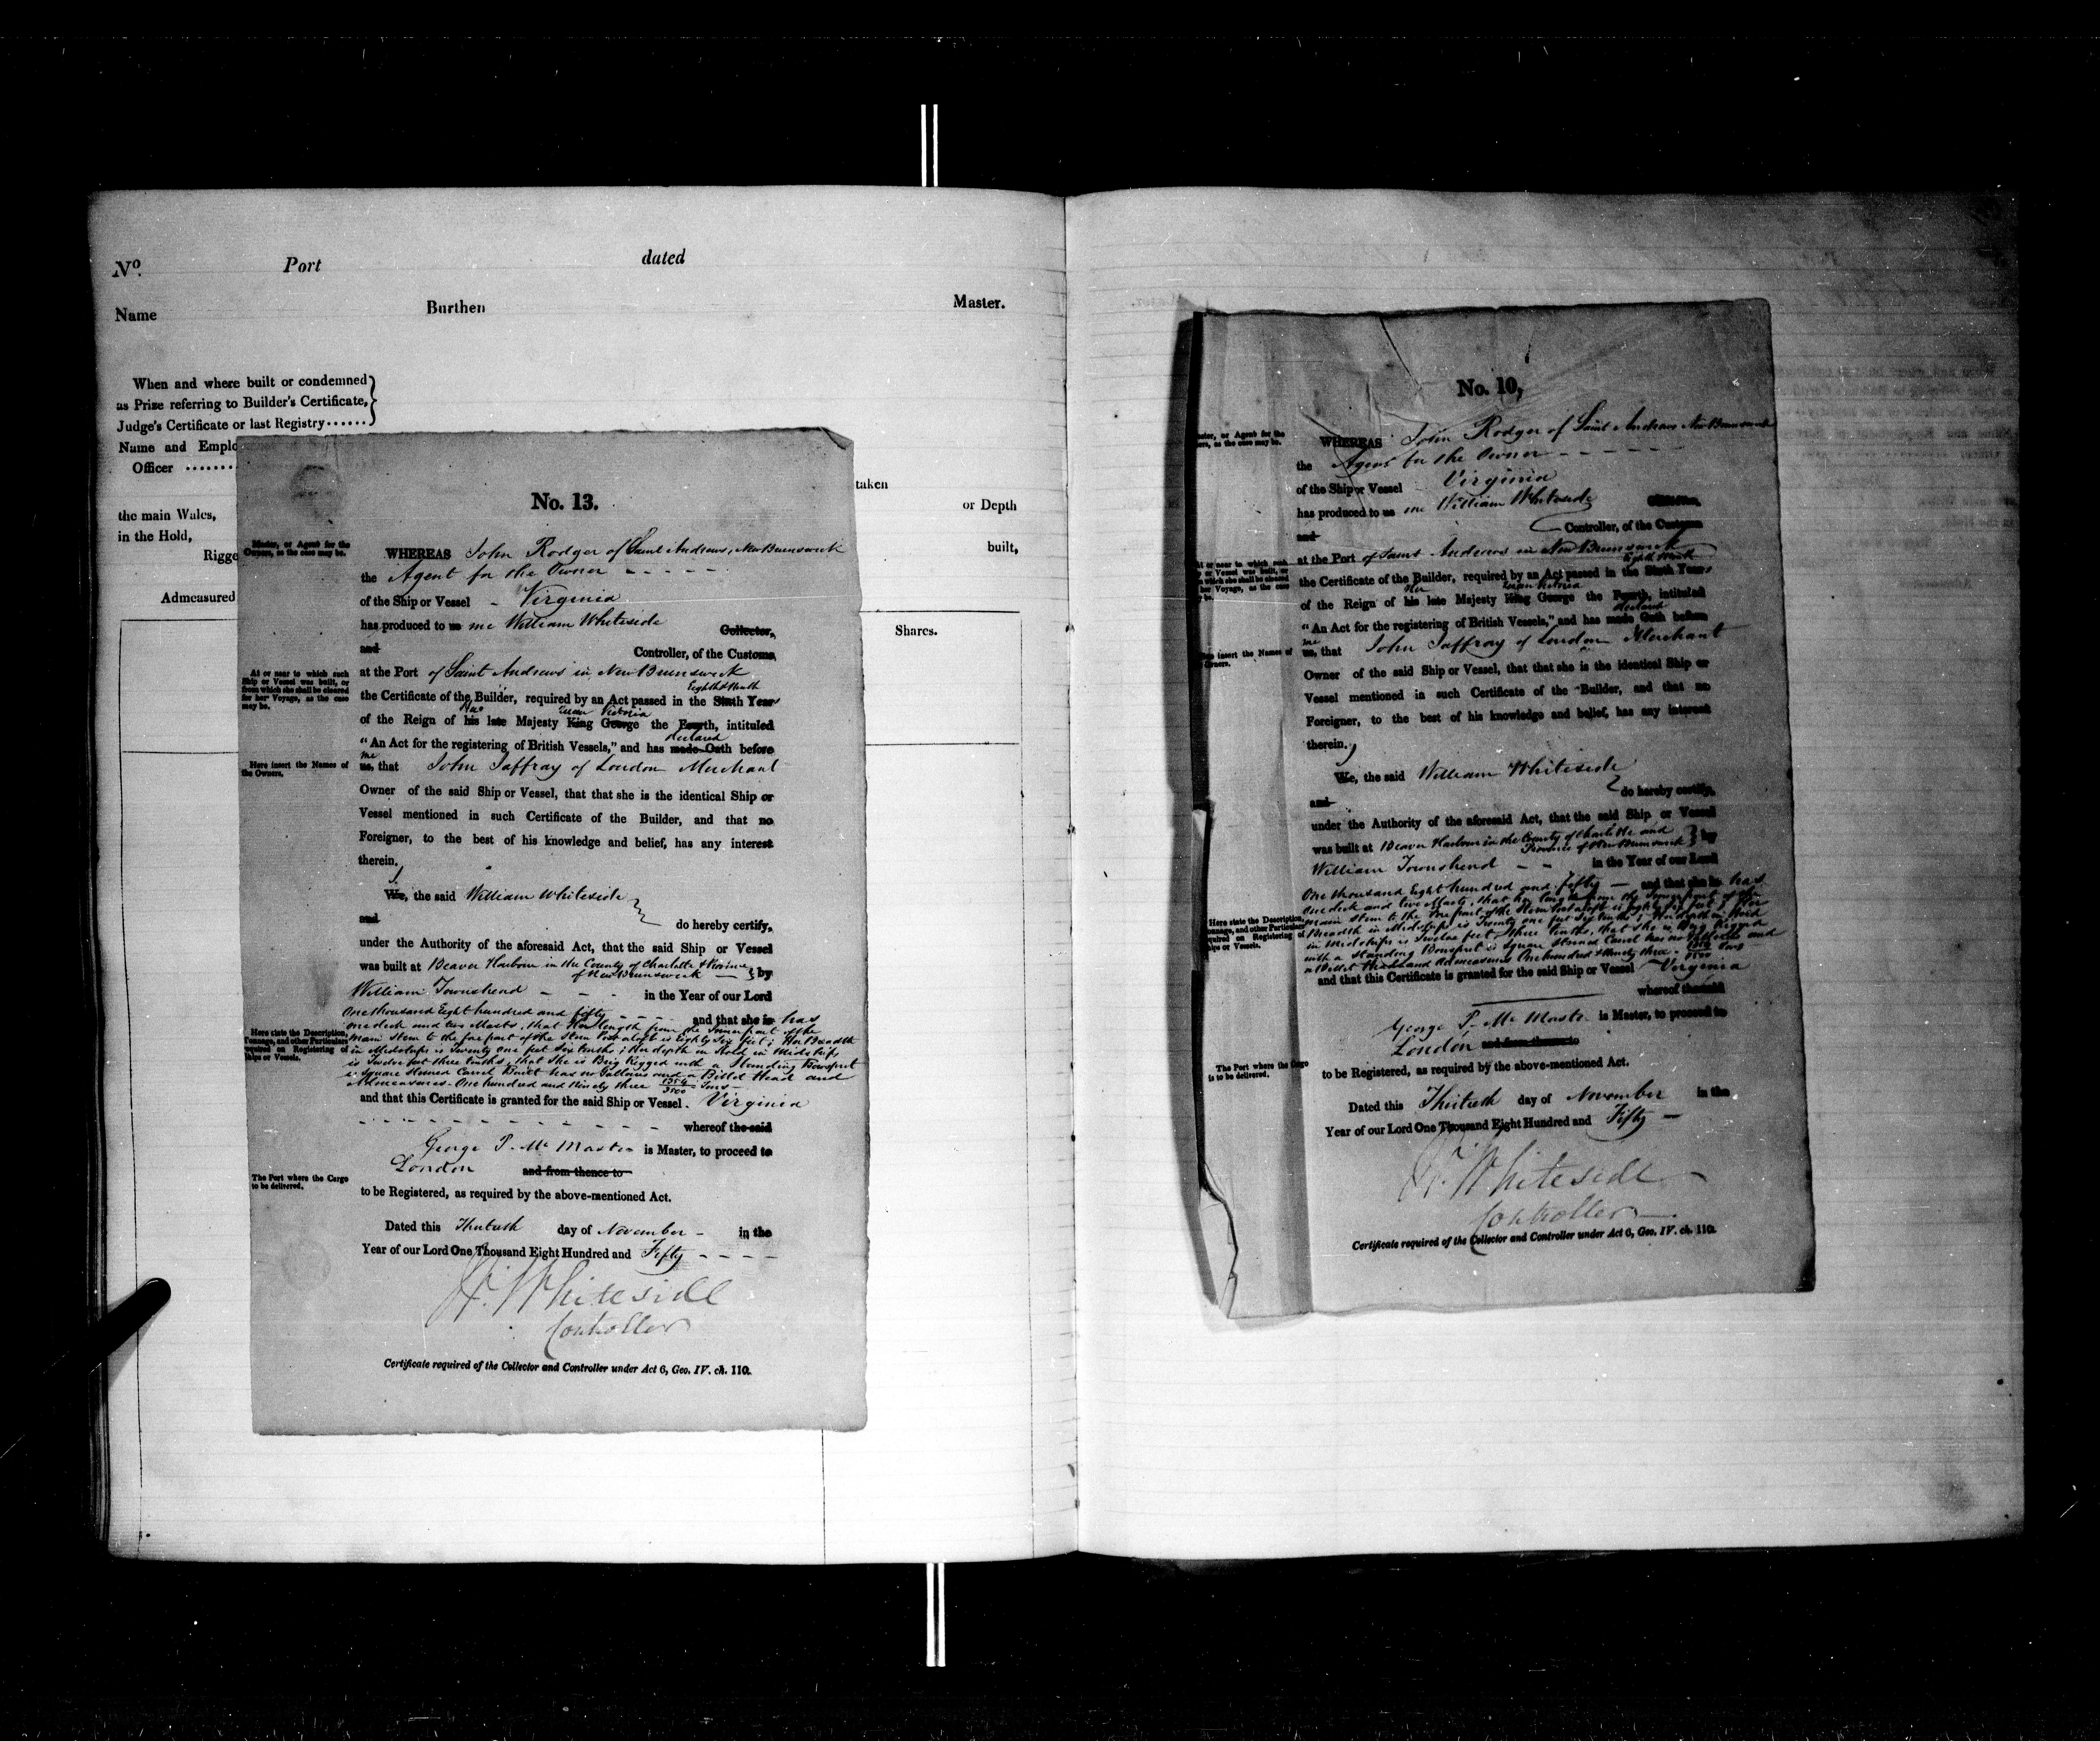 No. Port dated
Name Burthen Master.
When and where built or condemned
as Prize referring to Builder's Certificate,
Judge's Certificate or last Registry......
Name and Emplo
Officer ........
taken
the main Wales, or Depth
in the Hold,
Rigge built,
Admeasured
Shares.
No. 13.
Master, or Agent for the
Owners, as the case may be.
WHEREAS John Rodger of Saint Andrews, New Brunswick
the Agent for the Owner - - - - -
of the Ship or Vessel - Virginia
has produced to us me William Whiteside
Collector,
and Controller, of the Customs,
At or near to which such
Ship or Vessel was built, or
from which she shall be cleared
for her Voyage, as the case
may be.
at the Port of Saint Andrews in New Brunswick
Eighth & Ninth
the Certificate of the Builder, required by an Act passed in the Sixth Year
Her Queen Victoria
of the Reign of his late Majesty King George the Fourth, intituled
declared
"An Act for the registering of British Vessels," and has made Oath before
me
Here insert the Names of
the Owners.
us, that John Jaffray of London Merchant
Owner of the said Ship or Vessel, that that she is the identical Ship or
Vessel mentioned in such Certificate of the Builder, and that no
Foreigner, to the best of his knowledge and belief, has any interest
therein.
I
We, the said William Whiteside
and do hereby certify,
under the Authority of the aforesaid Act, that the said Ship or Vessel
was built at Beaver Harbour in the County of Charlotte & Province
of New Brunswick - by
William Townshend - - - in the Year of our Lord
One thousand Eight hundred and fifty - - - - and that she is has
Here state the Description,
Tonnage, and other Particulars
required on Registering of
Ships or Vessels.
one deck and two Masts, that Her length from the Inner part of the
main Stem to the fore part of the Stern Post aloft is Eighty Six feet; Her Breadth
in Midships is Twenty one feet Six tenths; Her depth in Hold in Midships
is Twelve feet three tenths, that She is Brig Rigged with a Standing Bowsprit
is Square Sterned Carvel Built has no Galleries and a Billet Head and
Admeasures - One hundred and Ninety three 1354/3500 Tons -
and that this Certificate is granted for the said Ship or Vessel. Virginia
- - - - - - - - - whereof the said
George P. Mc Master is Master, to proceed to
London and from thence to
The Port where the Cargo
is to be delivered.
to be Registered, as required by the above-mentioned Act.
Dated this Thirtieth day of November - in the
Year of our Lord One Thousand Eight Hundred and Fifty - - - -
W. Whiteside
Controller
Certificate required of the Collector and Controller under Act 6, Geo. IV. ch. 110.
No. 10,
ster, or Agent for the
ers, as the case may be.
WHEREAS John Rodger of Saint Andrews New Brunswick
the Agent for the Owner - - - - - -
of the Ship or Vessel Virginia
has produced to us me William Whiteside
Controller, of the Customs
and
At or near to which such
p or Vessel was built, or
which she shall be cleared
her Voyage, as the case
y be.
at the Port of Saint Andrews in New Brunswick
Eighth & Ninth
the Certificate of the Builder, required by an Act passed in the Sixth Year
Her Queen Victoria
of the Reign of his late Majesty King George the Fourth, intituled
declared
"An Act for the registering of British Vessels," and has made Oath before
me
insert the Names of
Owners.
us, that John Jaffray of London Merchant
Owner of the said Ship or Vessel, that that she is the identical Ship or
Vessel mentioned in such Certificate of the Builder, and that no
Foreigner, to the best of his knowledge and belief, has any interest
therein.
I
We, the said William Whiteside
and do hereby certify,
under the Authority of the aforesaid Act, that the said Ship or Vessel
was built at Beaver Harbour in the County of Charlotte and
Province of New Brunswick by
William Townshend - - in the Year of our Lord
One thousand Eight hundred and fifty - and that she is has
Here state the Description,
onnage, and other Particulars
quired on Registering of
hips or Vessels.
one deck and two Masts, that her length from the Inner part of the
main Stem to the fore part of the Stern Post aloft is Eighty Six feet; Her
Breadth in Midships is Twenty one feet Six tenths; Her depth in Hold
in Midships is Twelve feet three tenths, that She is Brig Rigged
with a Standing Bowsprit is Square Sterned Carvel has no Galleries and
a Billet Head and Admeasures One hundred & Ninety three 1354/3500 Tons
and that this Certificate is granted for the said Ship or Vessel Virginia
whereof the said
George P. Mc Master is Master, to proceed to
London and from thence to
The Port where the Cargo
is to be delivered.
to be Registered, as required by the above-mentioned Act.
Dated this Thirtieth day of November in the
Year of our Lord One Thousand Eight Hundred and Fifty -
W. Whiteside
Controller
Certificate required of the Collector and Controller under Act 6, Geo. IV. ch. 110.